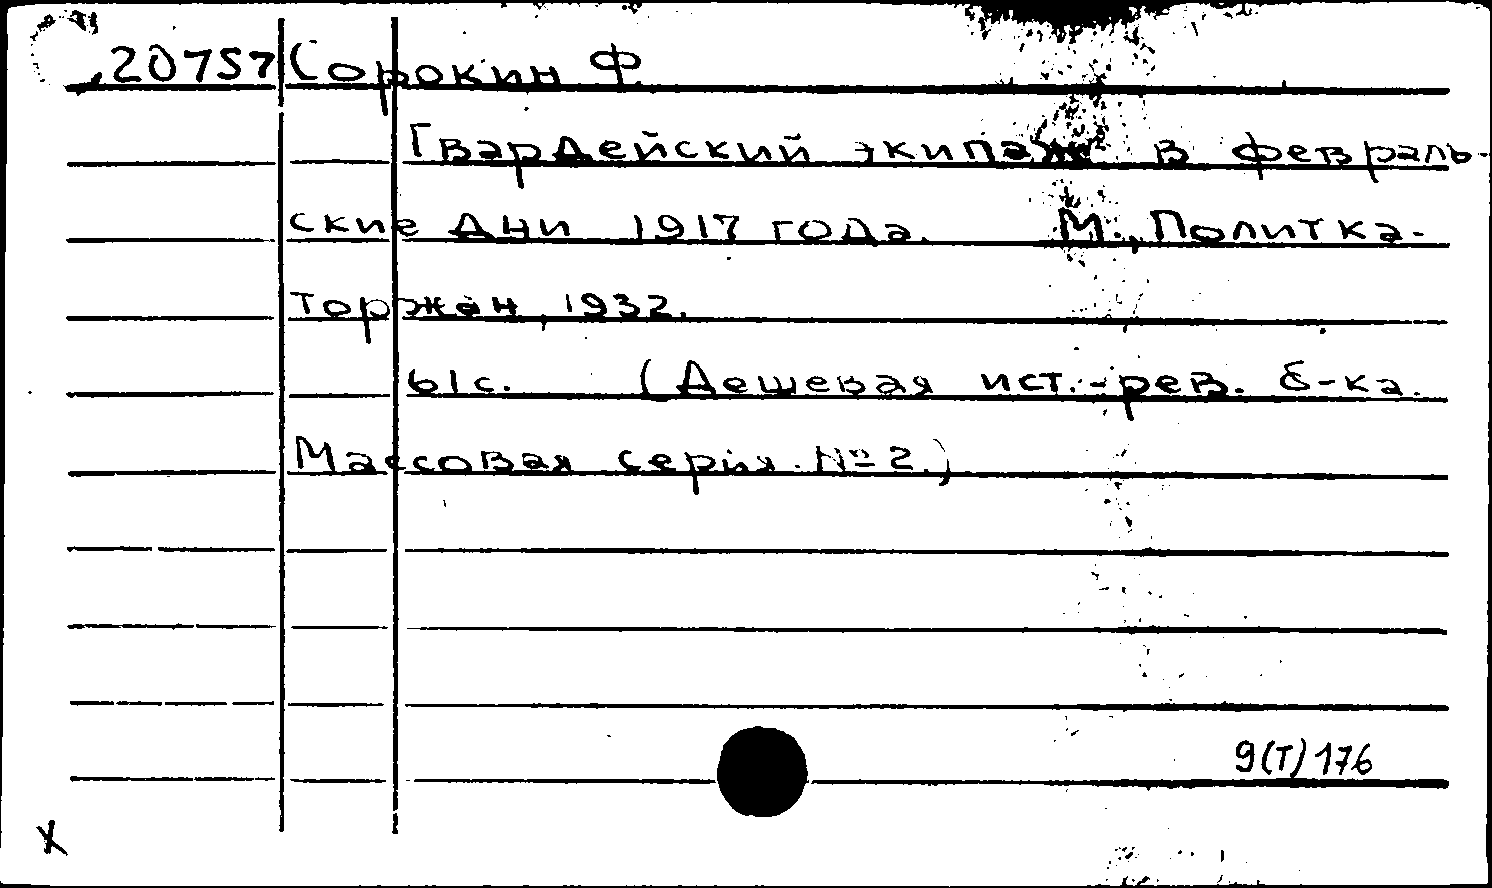 20757 Сорокин Ф.
Гвардейский экипаж в февраль-
ские дни 1917 года. М., Политка-
торжан, 1932.
61с. (Дешевая ист.-рев. б-ка.
Массовая серия. № 2.)
9(Т)176
X